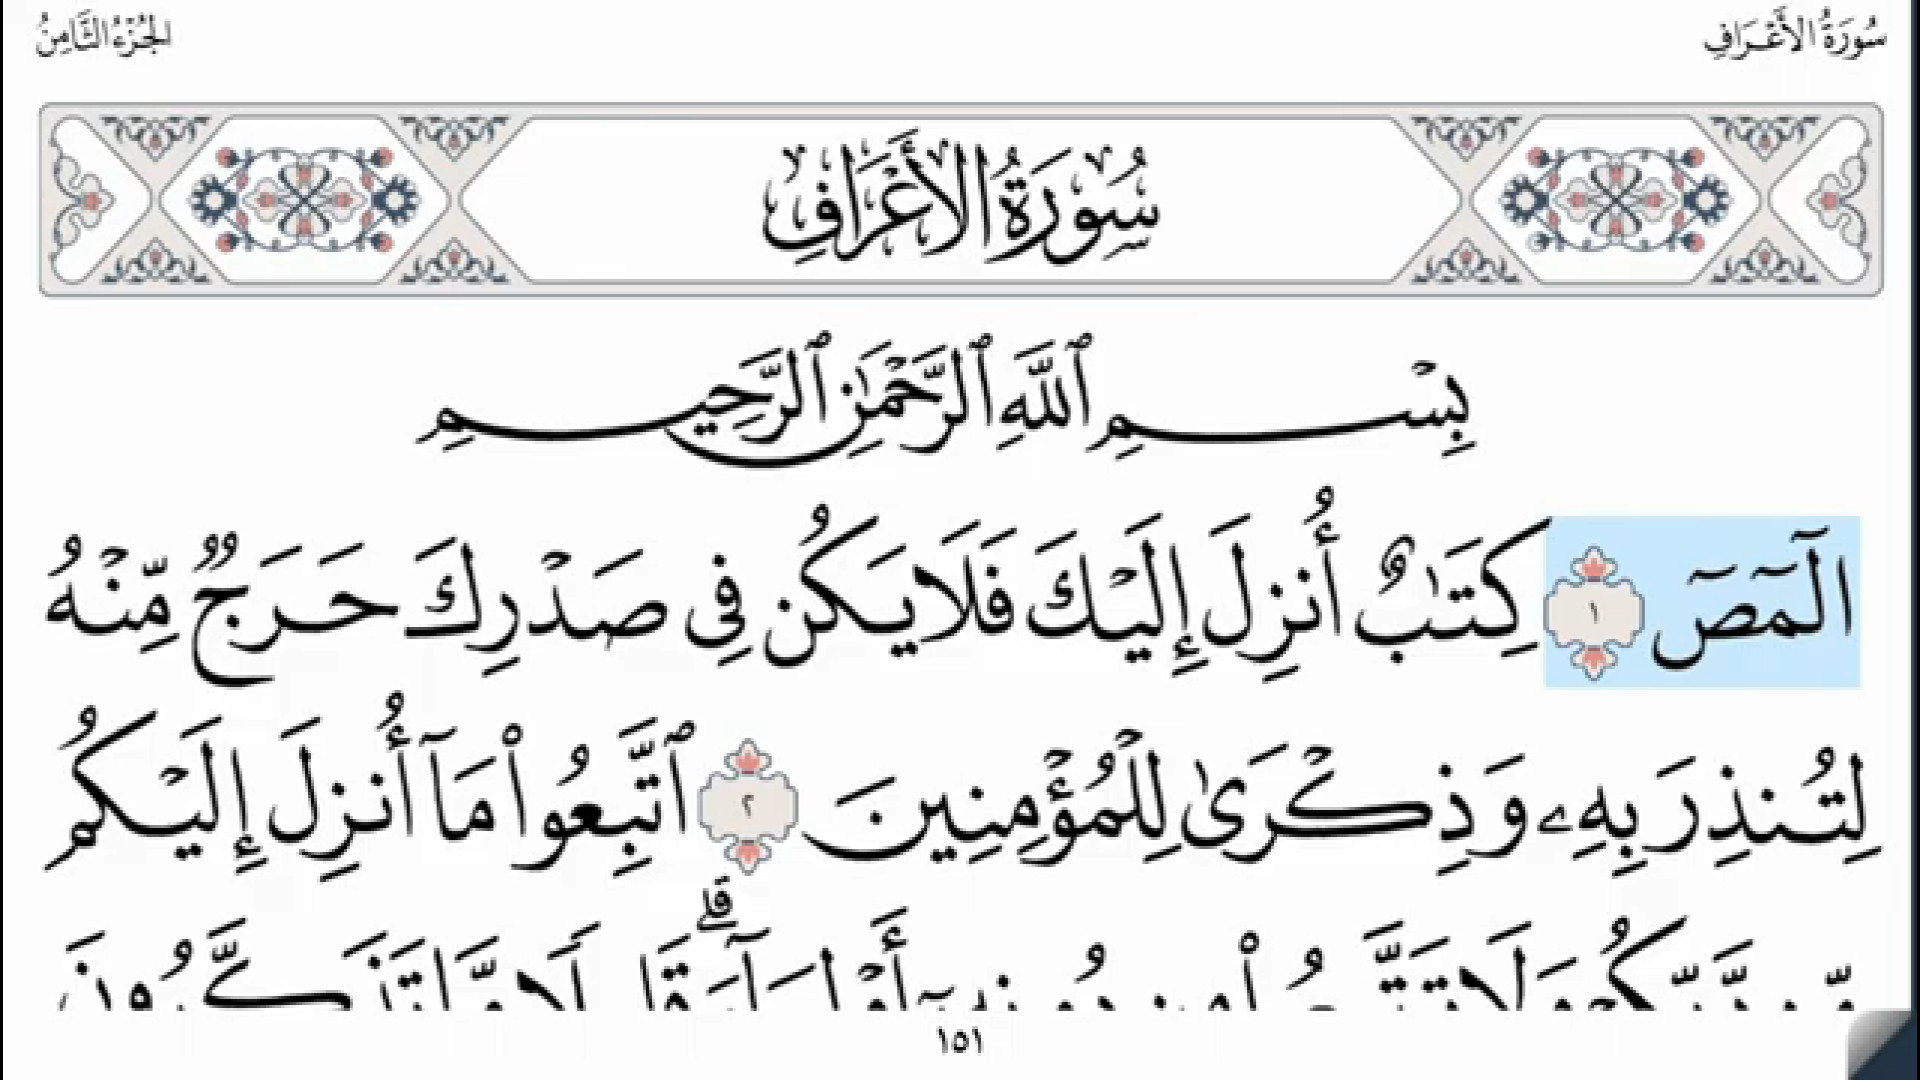 سُورَةُ الأَعْرَافِ
الجُزْءُ الثَّامِنُ
سُورَةُ الأَعْرَافِ
بِسْمِ ٱللَّهِ ٱلرَّحْمَٰنِ ٱلرَّحِيمِ
الٓمٓصٓ ١ كِتَٰبٌ أُنزِلَ إِلَيْكَ فَلَا يَكُن فِى صَدْرِكَ حَرَجٌ مِّنْهُ
لِتُنذِرَ بِهِۦ وَذِكْرَىٰ لِلْمُؤْمِنِينَ ٢ ٱتَّبِعُوا۟ مَآ أُنزِلَ إِلَيْكُم
مِّن رَّبِّكُمْ وَلَا تَتَّبِعُوا۟ مِن دُونِهِۦٓ أَوْلِيَآءَ ۗ قَلِيلًا مَّا تَذَكَّرُونَ
١٥١